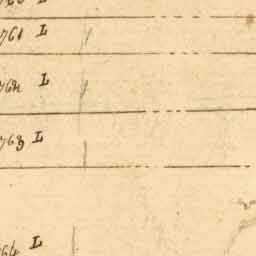 761 L
762 L
763 L
764 L